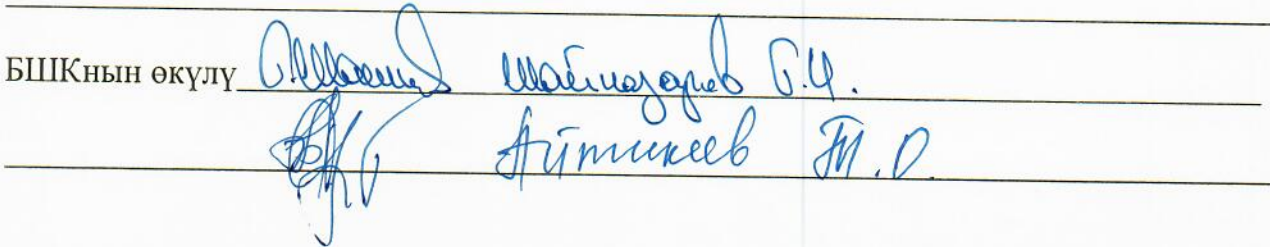 БШКнын өкүлү Шайназаров
Айтикеев Т.О.